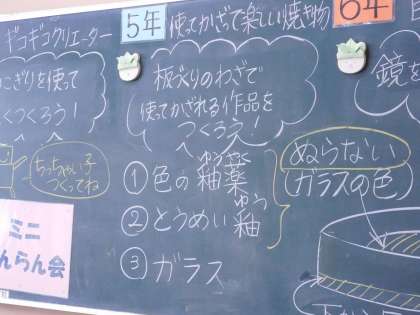 ギコギコクリエーター
こぎりを使って
くつくろう！
ちっちゃい子
つくってね
ミニ
んらん会
5年
使ってかざって楽しい焼き物
板づくりのわざで
使ってかざれる作品を
つくろう！
①色の釉薬
ゆうやく
②とうめい釉
ゆう
③ガラス
ぬらない
(ガラスの色)
6年
鏡を